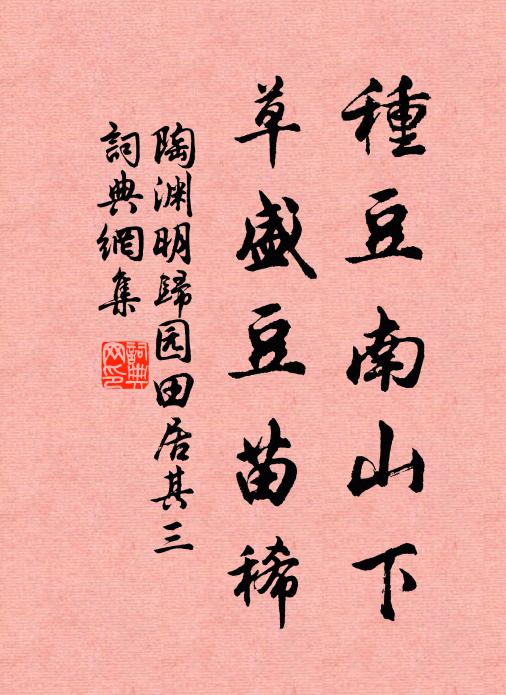 種豆南山下
草盛豆苗稀
陶渊明歸园田居其三
詞典網集
詞典网印